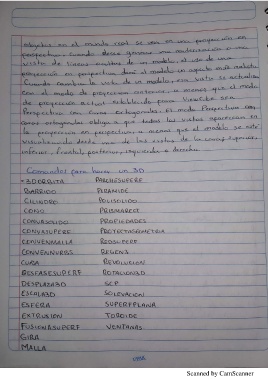 objetos en el mundo real se ven en una proyección en
perspectiva. Cuando desee generar una modelización o una
vista de líneas ocultas de un modelo, el uso de una
proyección en perspectiva dará al modelo un aspecto más realista.
Cuando cambia la vista de un modelo, esa vista se actualiza
con el modo de proyección anterior, a menos que el modo
de proyección actual establecido posea ViewCube sea
Perspectiva con caras ortogonales. El modo Perspectiva con
caras ortogonales obliga a que todas las vistas aparezcan en
la proyección en perspectiva, a menos que el modelo se esté
visualizando desde una de las vistas de la cara superior,
inferior, frontal, posterior, izquierda o derecha.
Comandos para hacer un 3D
- 3DORBITA
BARRIDO
CILINDRO
CONO
CONVASOLIDO
CONVASUPERF
CONVENMALLA
CONVENNURBS
CUBA
DESFASESUPERF
DESPLAZA3D
ESCALA3D
ESFERA
EXTRUSION
FUSIONASUPERF
GIRA
MALLA
PARCHESUPERF
PIRAMIDE
POLISOLIDO
PRISMARECT
PROPIEDADES
PROYECTAGEOMETRIA
REGION
REVOLUCION
ROTACION3D
SCP
SOLEVACION
SUPERFPLANA
TOROIDE
VENTANAS
Scanned by CamScanner